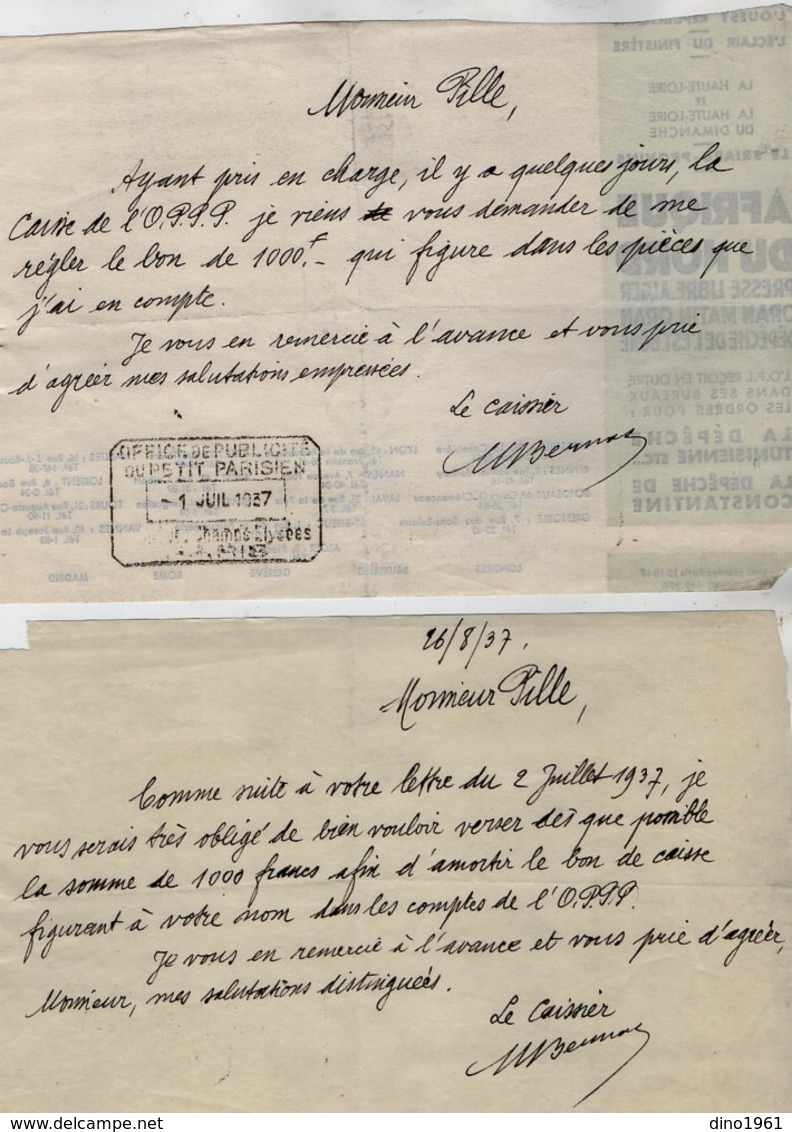 Monsieur Pille,
Ayant pris en charge, il y a quelques jours, la
Caisse de l'O.P.P.P. je viens de vous demander de me
régler le bon de 1000.F— qui figure dans les pièces que
j'ai en compte.
Je vous en remercie à l'avance et vous prie
d'agréer mes salutations empressées.
Le Caissier
OFFICE DE PUBLICITÉ
DU PETIT PARISIEN
-1 JUIL 1937
Champs Elysées
PARIS
L'OUEST RÉPUBLICAIN
L'ÉCLAIR DU FINISTÈRE
LA HAUTE-LOIRE
ET
LA HAUTE-LOIRE
DU DIMANCHE
AFRIQUE
DU NORD
PRESSE LIBRE ALGER
ORAN MATIN ORAN
DÉPÊCHE DE L'EST BÔNE
L'O.P.L. REÇOIT EN OUTRE,
DANS SES BUREAUX
LES ORDRES POUR :
LA DÉPÊCHE
TUNISIENNE ETC...
LA DÉPÊCHE DE
CONSTANTINE
LONDRES BRUXELLES GENÈVE ROME MADRID
26/8/37.
Monsieur Pille,
Comme suite à votre lettre du 2 Juillet 1937, je
vous serais très obligé de bien vouloir verser dès que possible
la somme de 1000 francs afin d'amortir le bon de caisse
figurant à votre nom dans les comptes de l'O.P.P.P.
Je vous en remercie à l'avance et vous prie d'agréer,
Monsieur, mes salutations distinguées.
Le Caissier
dino1961